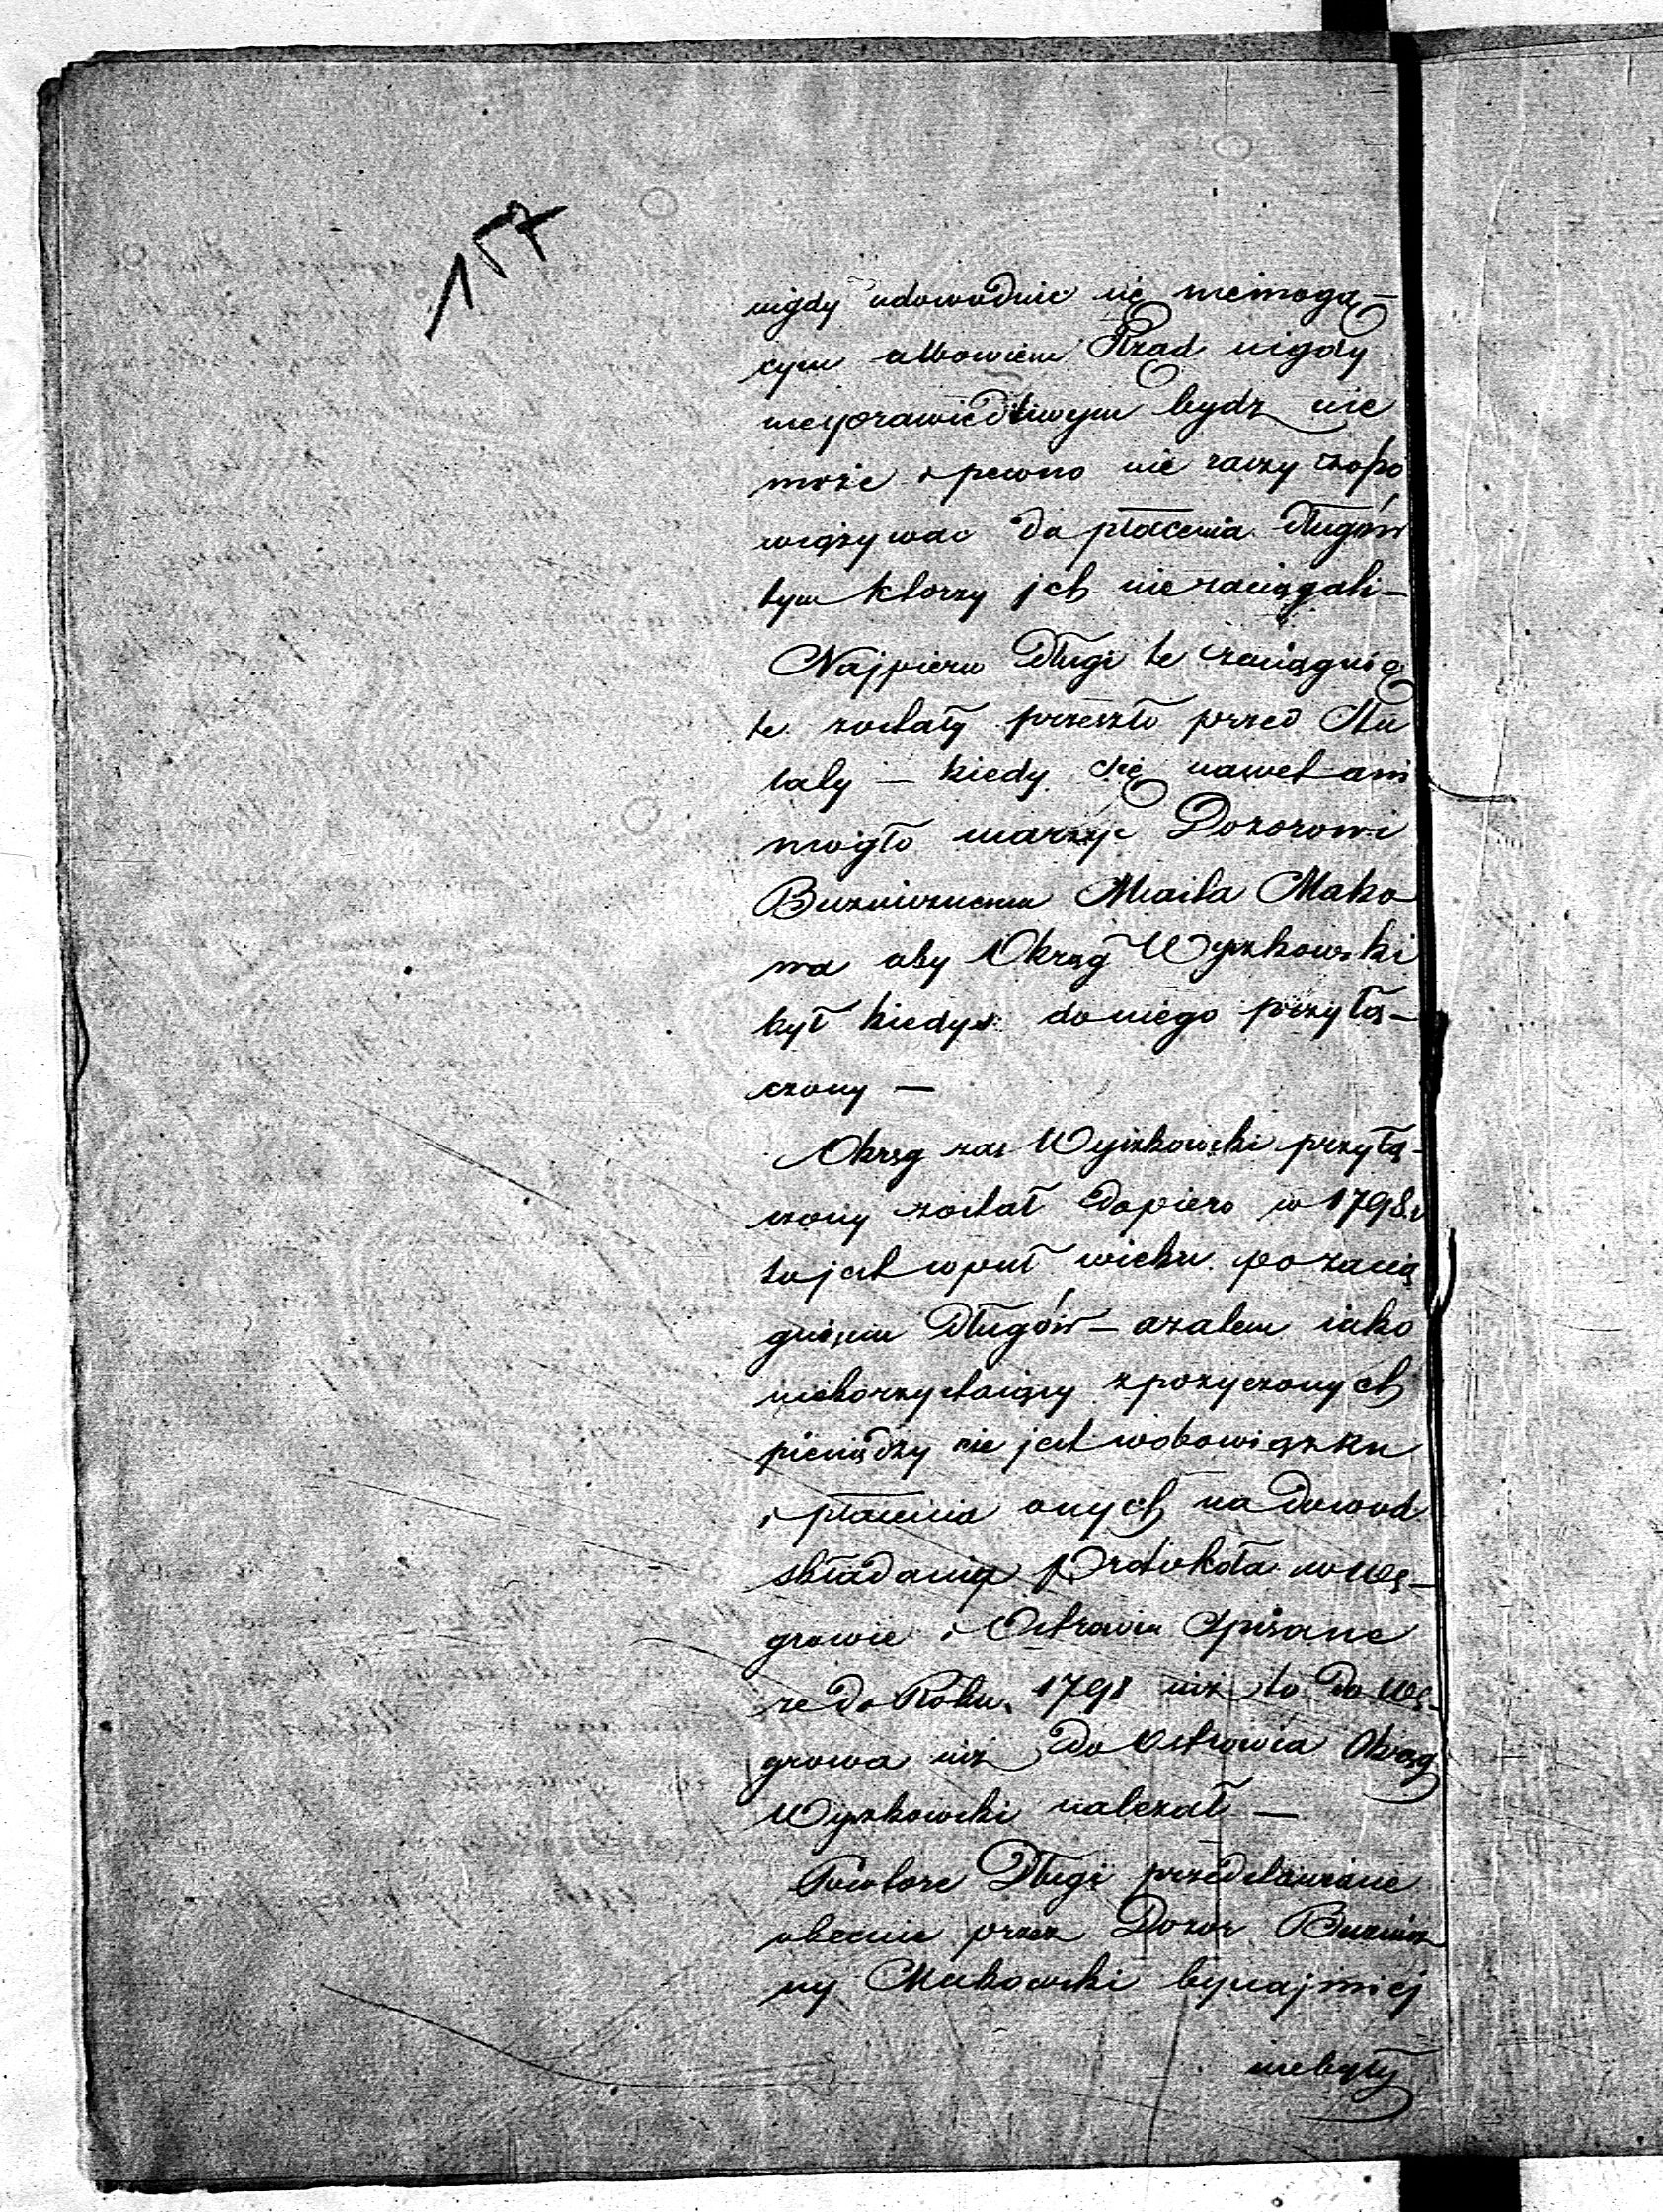 157
nigdy udowodnić się niemogą-
cym albowiem Rząd nigdy
niesprawiedliwym bydz nie
może i pewno nie raczy zobo
wiązywac do płacenia długów
tym ktorzy jch nie zaciągali –
Najpierw Długi te zaciągnię
te zostały przeszło przed Stu
laty – kiedy się nawet ani
mogło marzyc Dozorowi
Bużnicznemu Miasta Mako
wa aby Okrąg Wyszkowski
był kiedys do niego przyłą-
czony –
Okrąg zas Wyszkowski przyłą-
czony został dopiero w 1798 r
to jest w puł wieku po zacią
gnięciu Długów – a zatem iako
niekorzystaiący z pozyczonych
pieniędzy nie jest w obowiązku
płacenia onych na dowod
składamy Protokoła w Wę-
growie i Ostrowiu Spisane
że do Roku 1798 niz to do Wę-
growa niz do Ostrowia Okrąg
Wyszkowski nalezał –
Powtore Długi przedstawione
obecnie przez Dozor Bużnicz
ny Makowski bynajmiej
niebyły